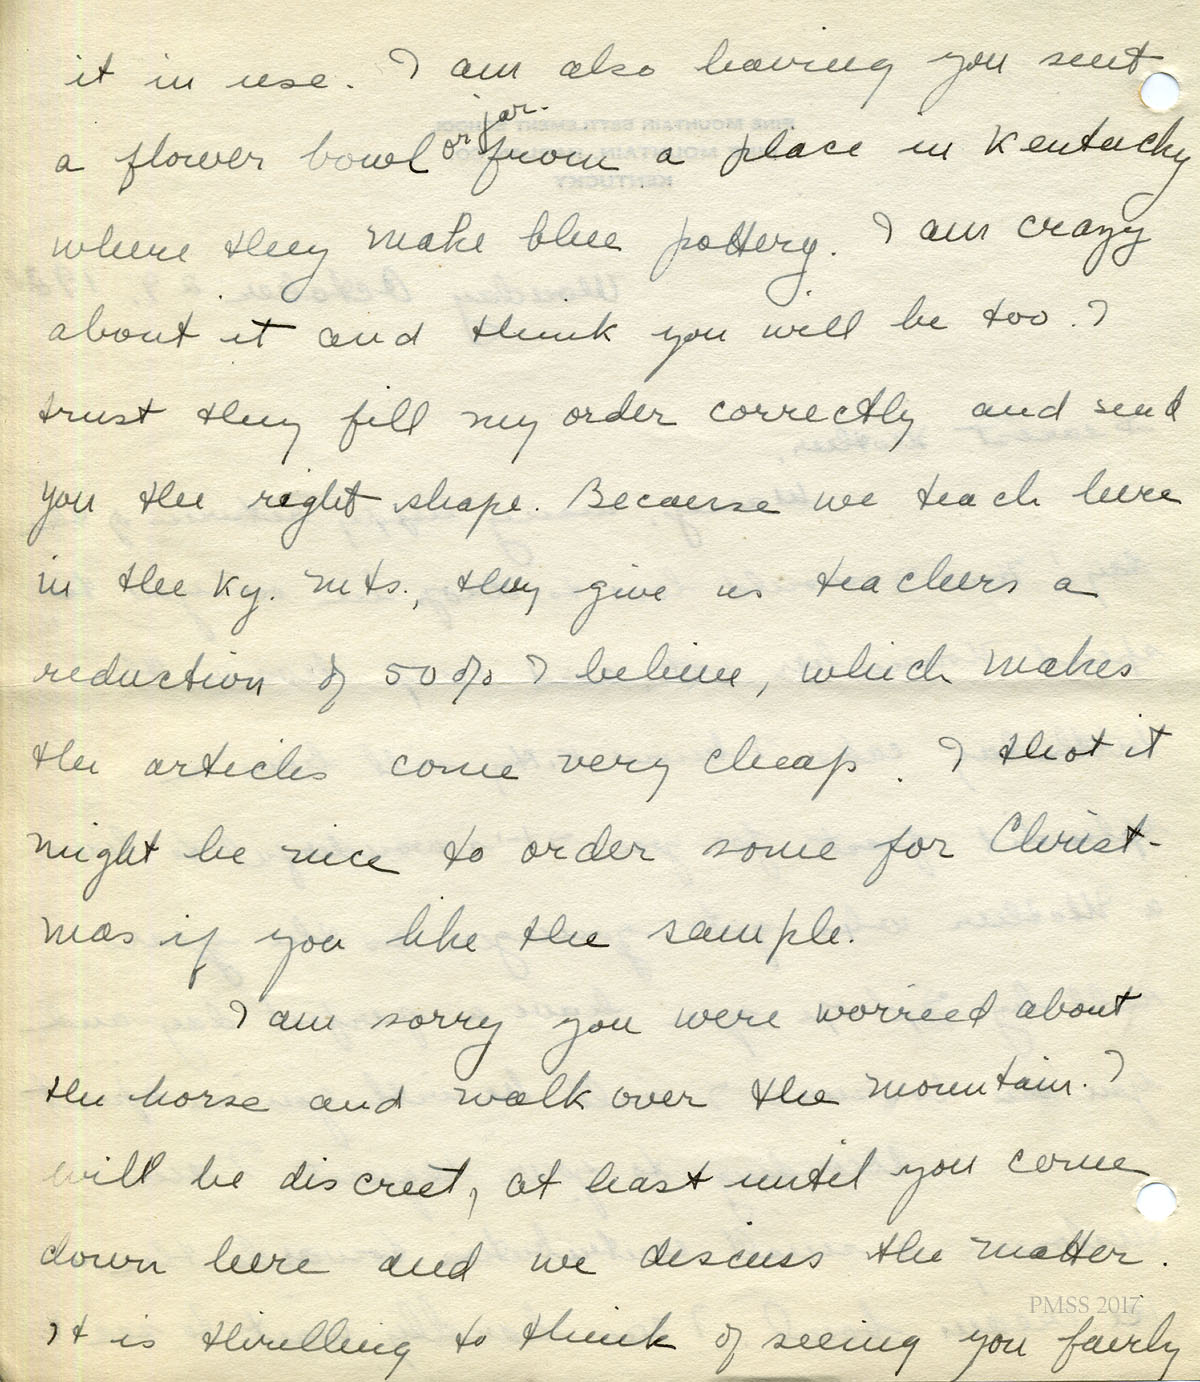 it in use. I am also having you sent
a flower bowl or jar. from a place in Kentucky
where they make blue pottery. I am crazy
about it and think you will be too. I
trust they fill my order correctly and send
you the right shape. Because we teach here
in the Ky. mts., they give us teachers a
reduction of 50% I believe, which makes
the articles come very cheap. I thot it
might be nice to order some for Christ-
mas if you like the sample.
I am sorry you were worried about
the horse and walk over the mountain. I
will be discreet, at least until you come
down here and we discuss the matter.
It is thrilling to think of seeing you fairly
PMSS 2017